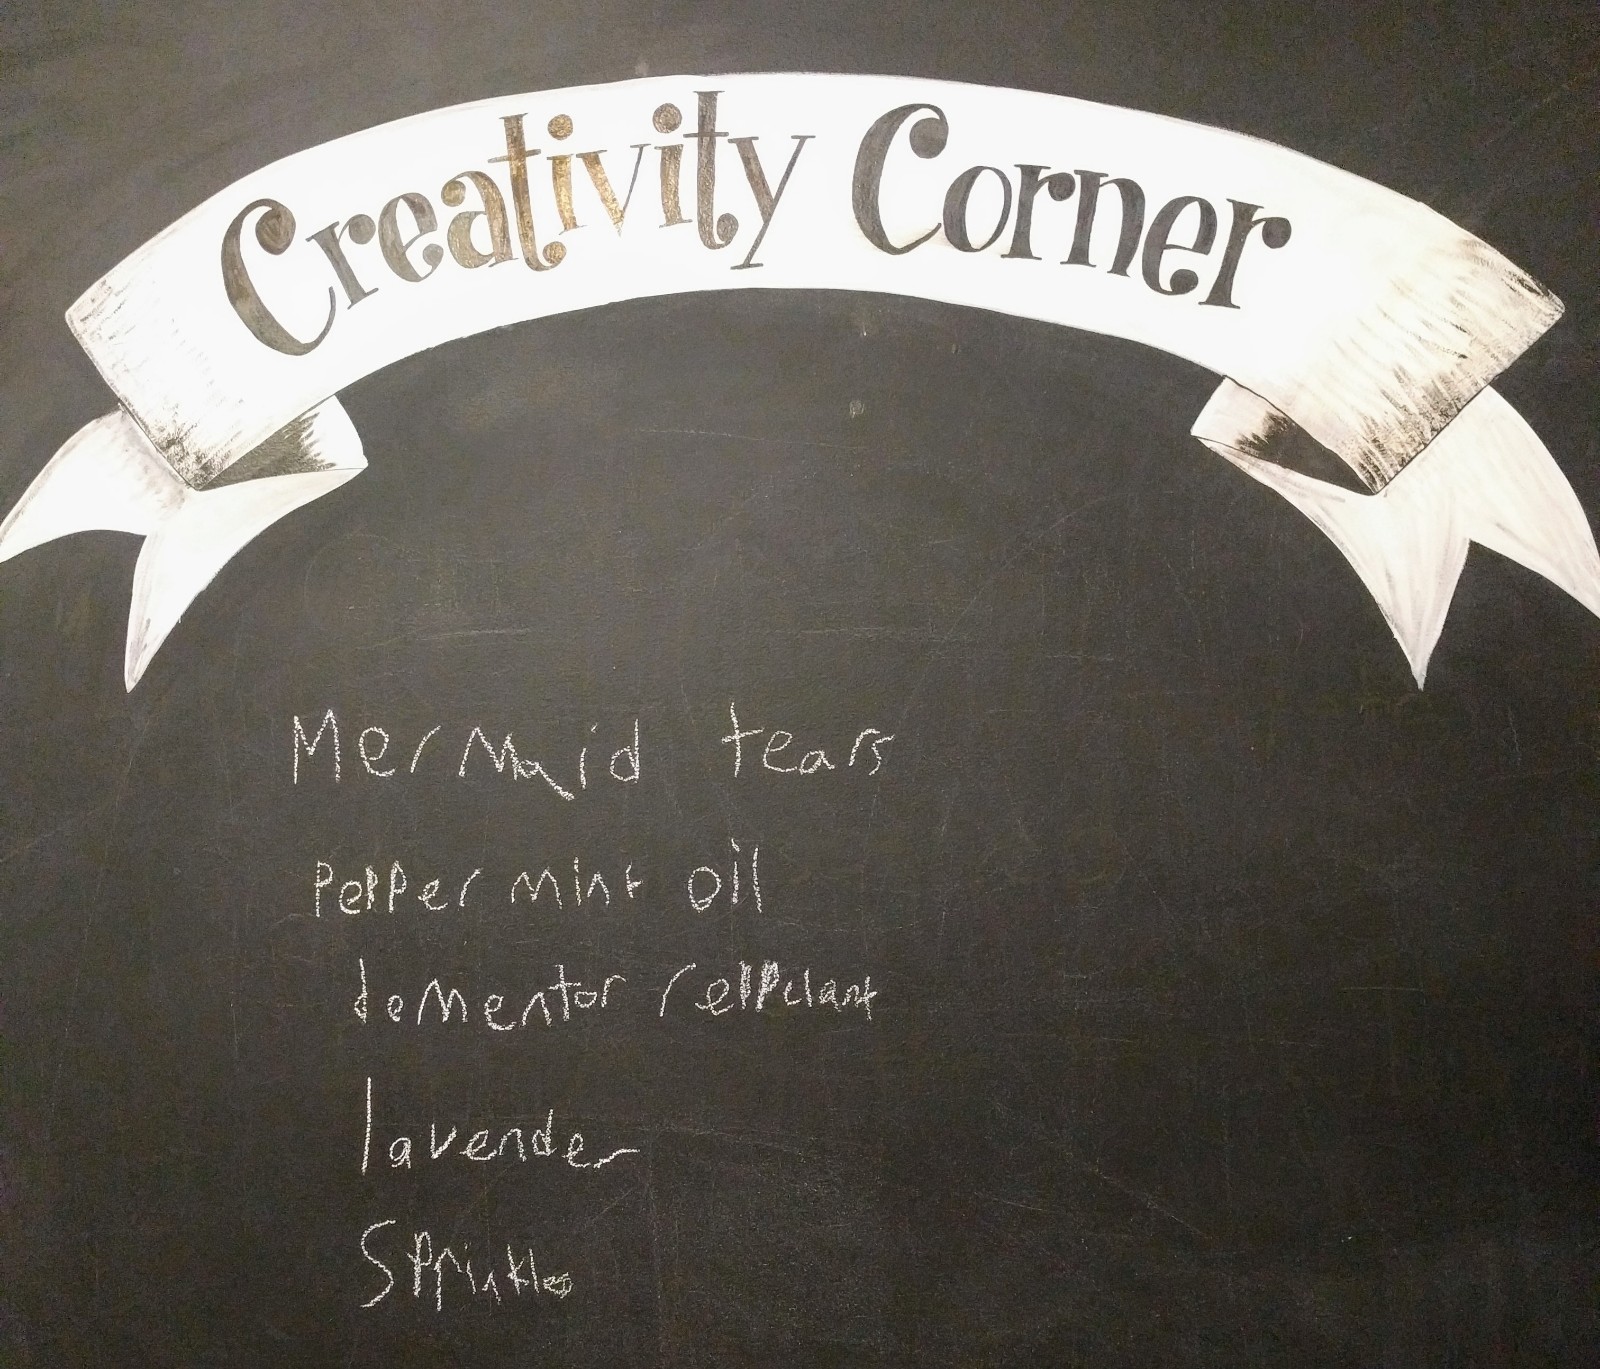 Creativity Corner
Mermaid tears
pepper mint oil
dementor reppelant
lavender
Sprinkles